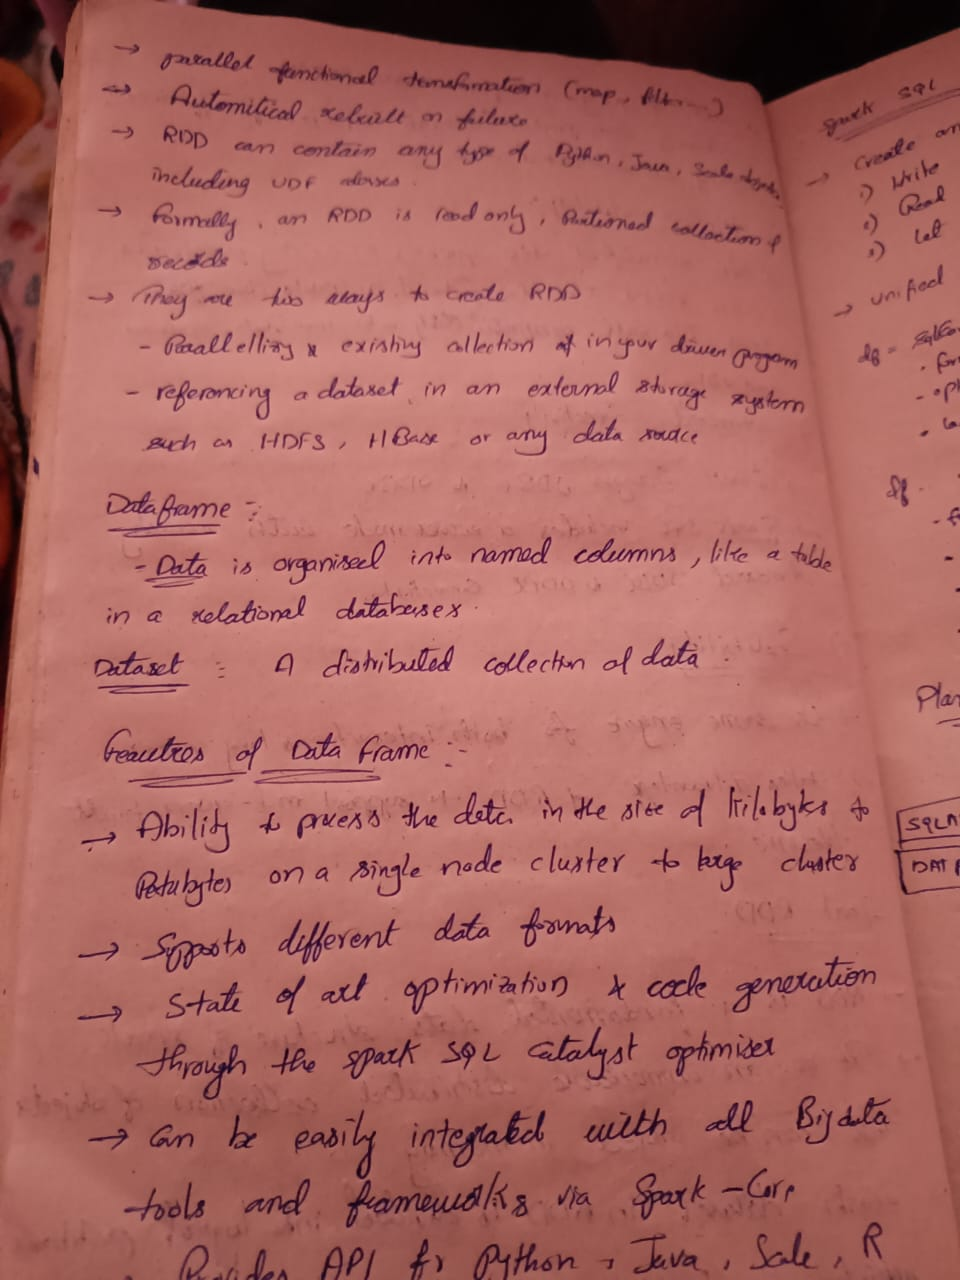 → parallel functional transformation (map, filter...)
→ Automitical rebuilt on failure
→ RDD can contain any type of Python, Java, Scala objects,
including UDF classes.
→ formally, an RDD is read only, Partioned collection of
records.
→ They are two ways to create RDD
- existing collection of in your driver program
- referencing a dataset in an external storage system
such as HDFS, HBase or any data source
Dataframe :-
- Data is organised into named columns, like a table
in a relational databases.
Dataset : A distributed collection of data.
Feautres of Data frame :-
→ Ability to process the data in the size of kilobytes to
Petabytes on a single node cluster to large cluster
→ Supports different data formats
→ State of art optimization & code generation
through the spark SQL Catalyst optimiser
→ Can be easily integrated with all Big data
tools and frameworks via Spark-Core
Provides API for Python, Java, Scale, R
Spark SQL
→ Create an
1) Write
2) Read
3) Let
→ unified
df =
df.
Plan
SQL
DAT